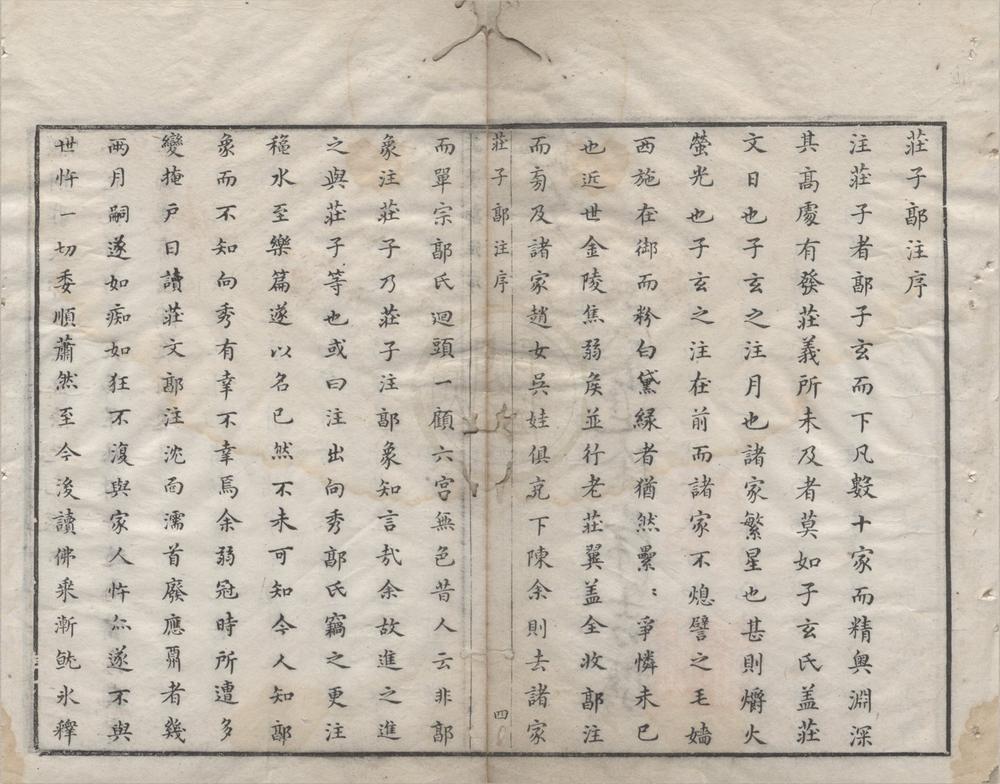 莊子郭注序
注莊子者郭子玄而下凡數十家而精奧淵深
其高處有發莊義所未及者莫如子玄氏盖莊
文日也子玄之注月也諸家繁星也甚則爝火
螢光也子玄之注在前而諸家不熄譬之毛嬙
西施在御而粉白黛綠者猶然纍〻爭憐未已
也近世金陵焦弱矦並行老莊翼盖全收郭注
而旁及諸家趙女吳娃俱充下陳余則去諸家
莊子郭注序
四
而單宗郭氏迴頭一顧六宮無色昔人云非郭
象注莊子乃莊子注郭象知言㢤余故進之進
之與莊子等也或曰注出向秀郭氏竊之更注
穐水至樂篇遂以名已然不未可知今人知郭
象而不知向秀有幸不幸焉余弱冠時所遭多
變掩戸日讀莊文郭注沈面濡首廢應酬者幾
兩月嗣遂如痴如狂不復與家人忤亦遂不與
世忤一切委順蕭然至今後讀佛乘漸就氷釋